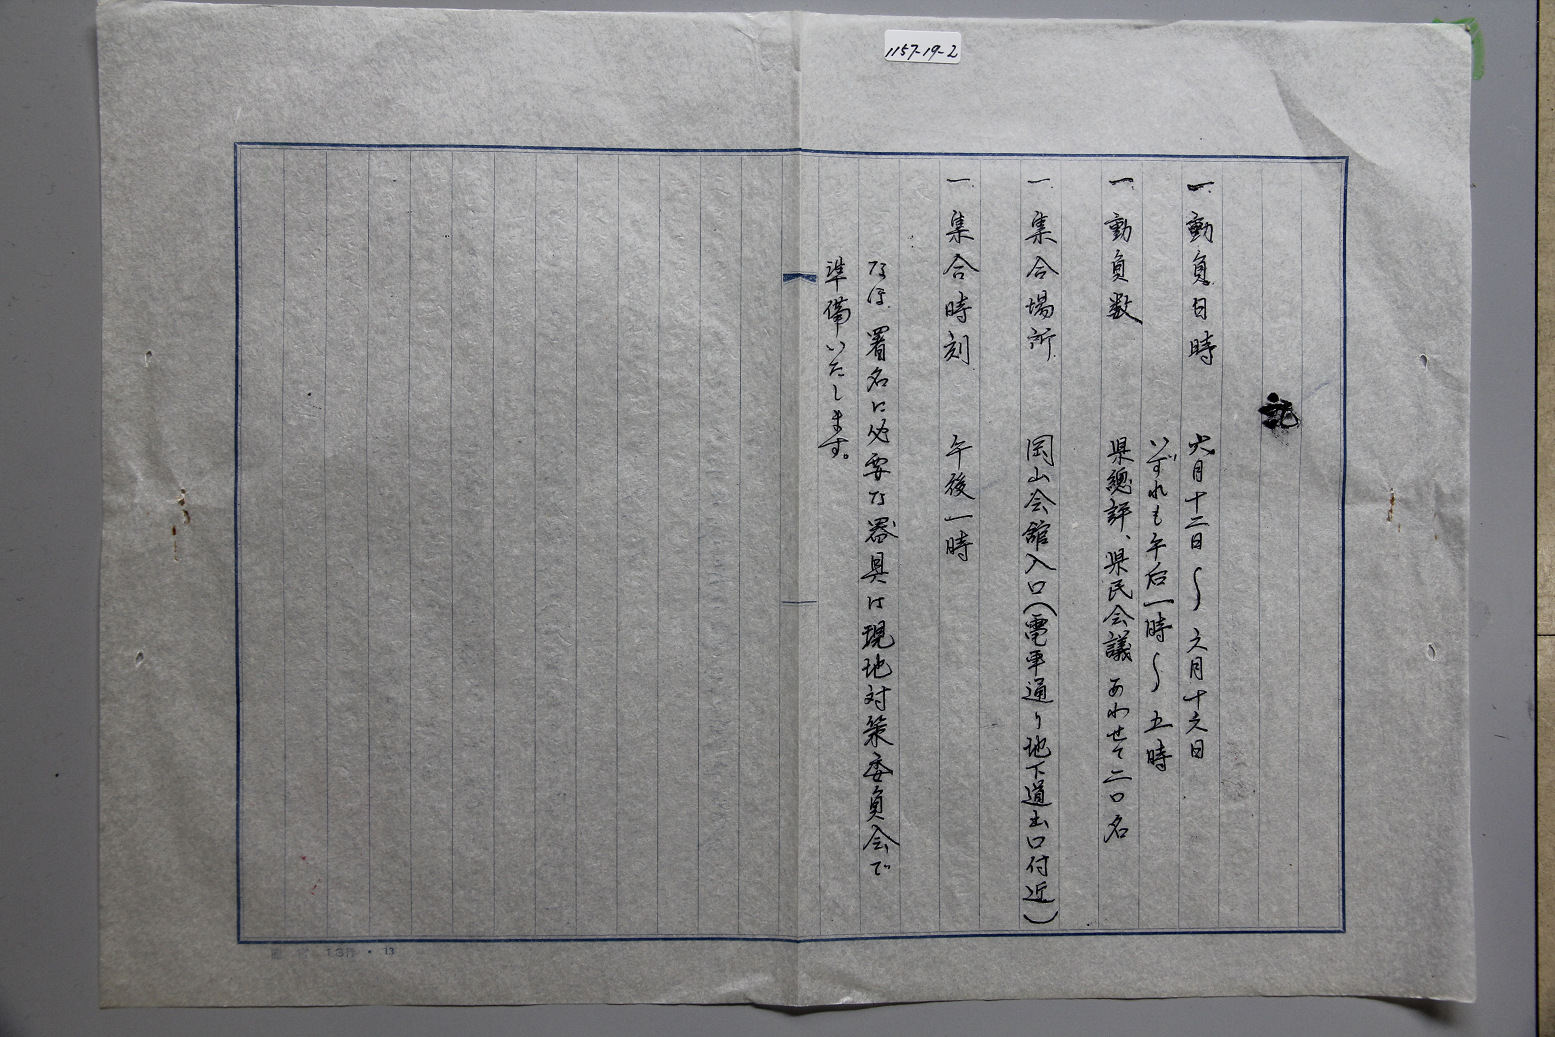 1157-19-2
記
一、動員日時 六月十二日〜六月十六日
いずれも午后一時〜五時
一、動員数 県總評、県民会議あわせて二〇名
一、集合場所 岡山会館入口(電車通り地下道出口付近)
一、集合時刻 午後一時
なほ、署名に必要な器具は現地対策委員会で
準備いたします。